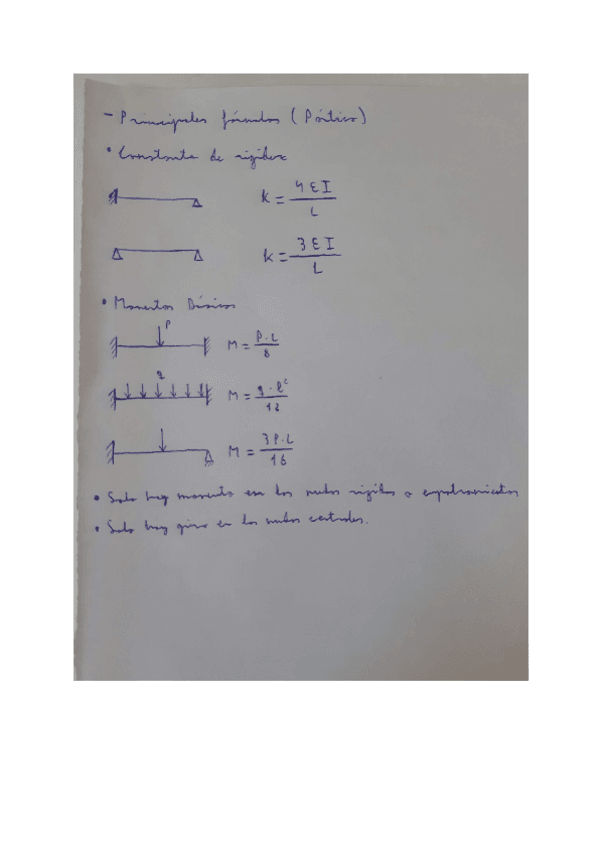 - Principales fórmulas (Pórtico)
• Constante de rigidez
K = 4EI / L
K = 3EI / L
• Momentos Básicos
P
M = P·L / 8
q
M = q·l² / 12
M = 3P·L / 16
• Solo hay momento en los nudos rigidos o empotramientos
• Solo hay giro en los nudos centrales.